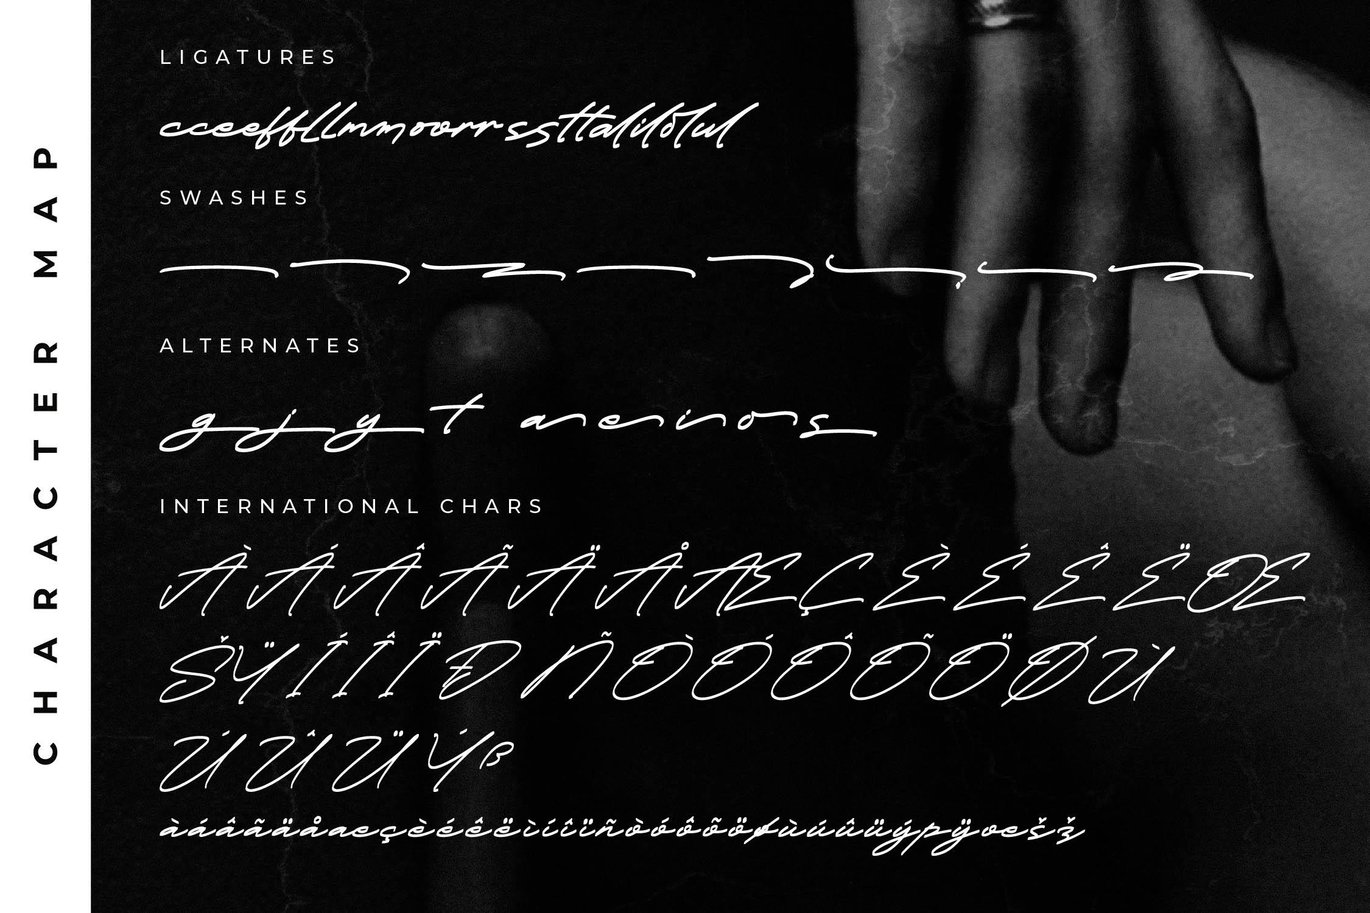 CHARACTER MAP
LIGATURES
cceeffllmmoorrssttalilolul
SWASHES
ALTERNATES
g j y t a e i o s
INTERNATIONAL CHARS
À Á Â Ã Ä Å Æ Ç È É Ê Ë Œ
Š Ÿ Í Î Ï Ð Ñ Ò Ó Ô Õ Ö Ø Ù
Ú Û Ü Ý ß
àáâãäåæçèéêëìíîïñòóôõöøùúûüýþÿœšž